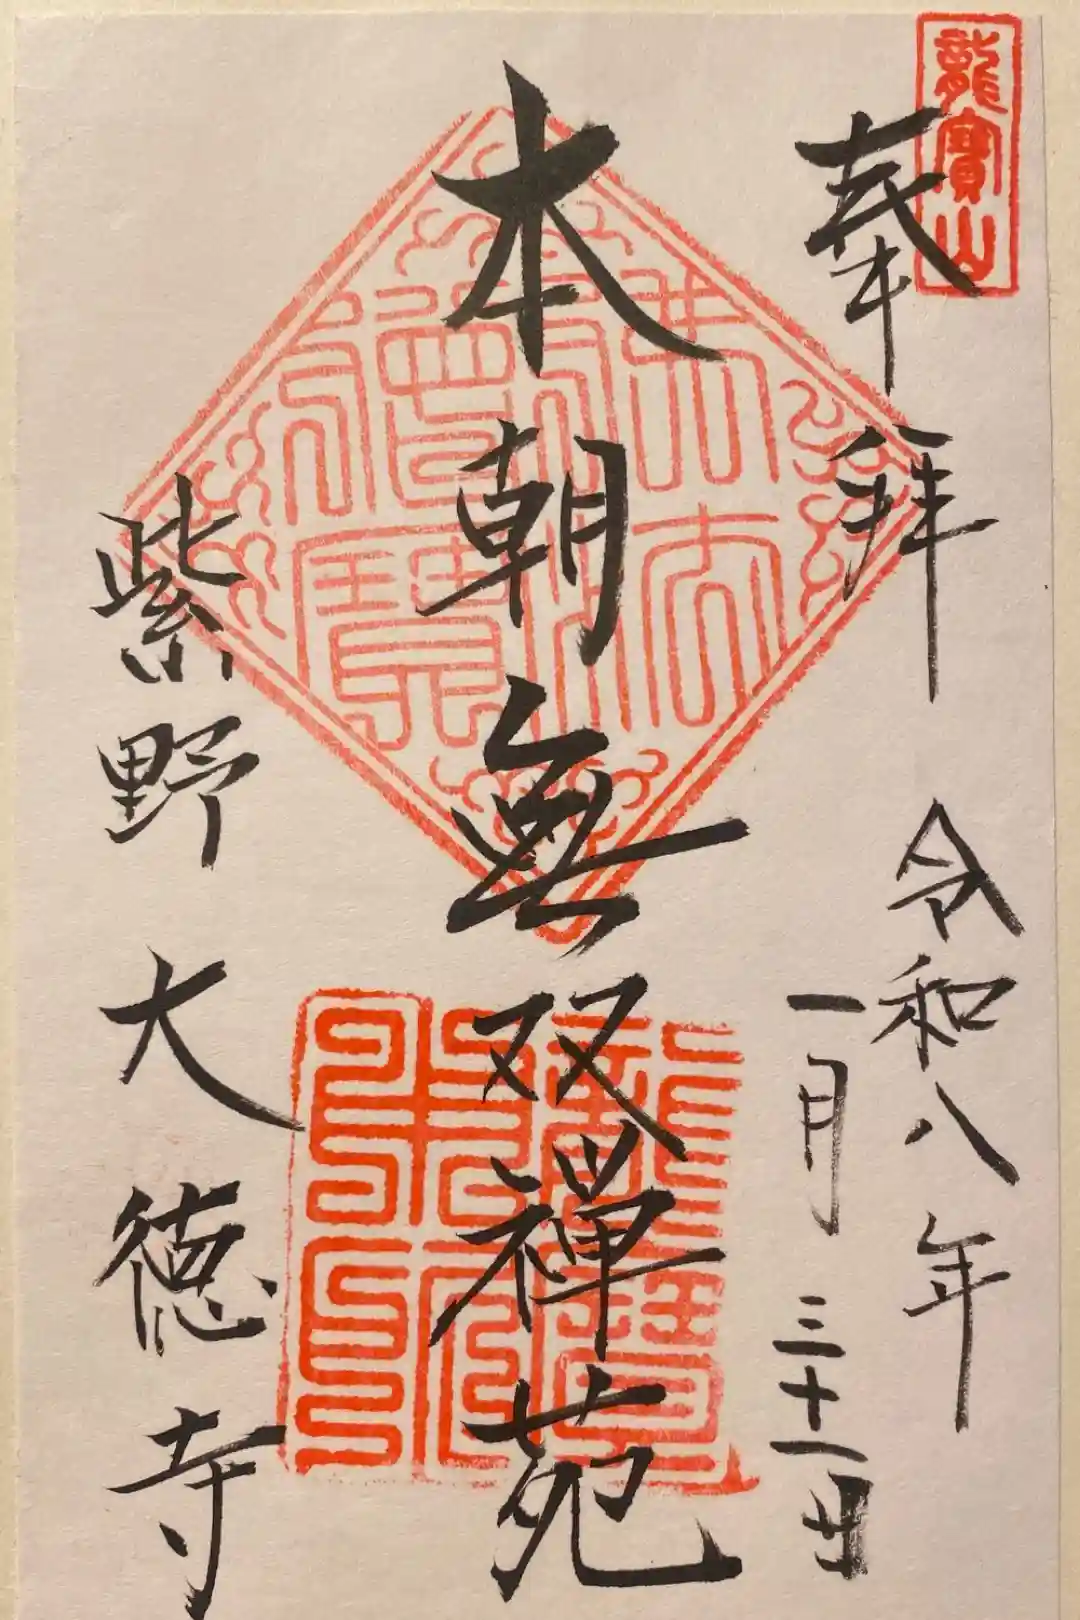 龍寶山
奉拝
令和八年
一月三十一日
本朝無双禅苑
紫野大徳寺